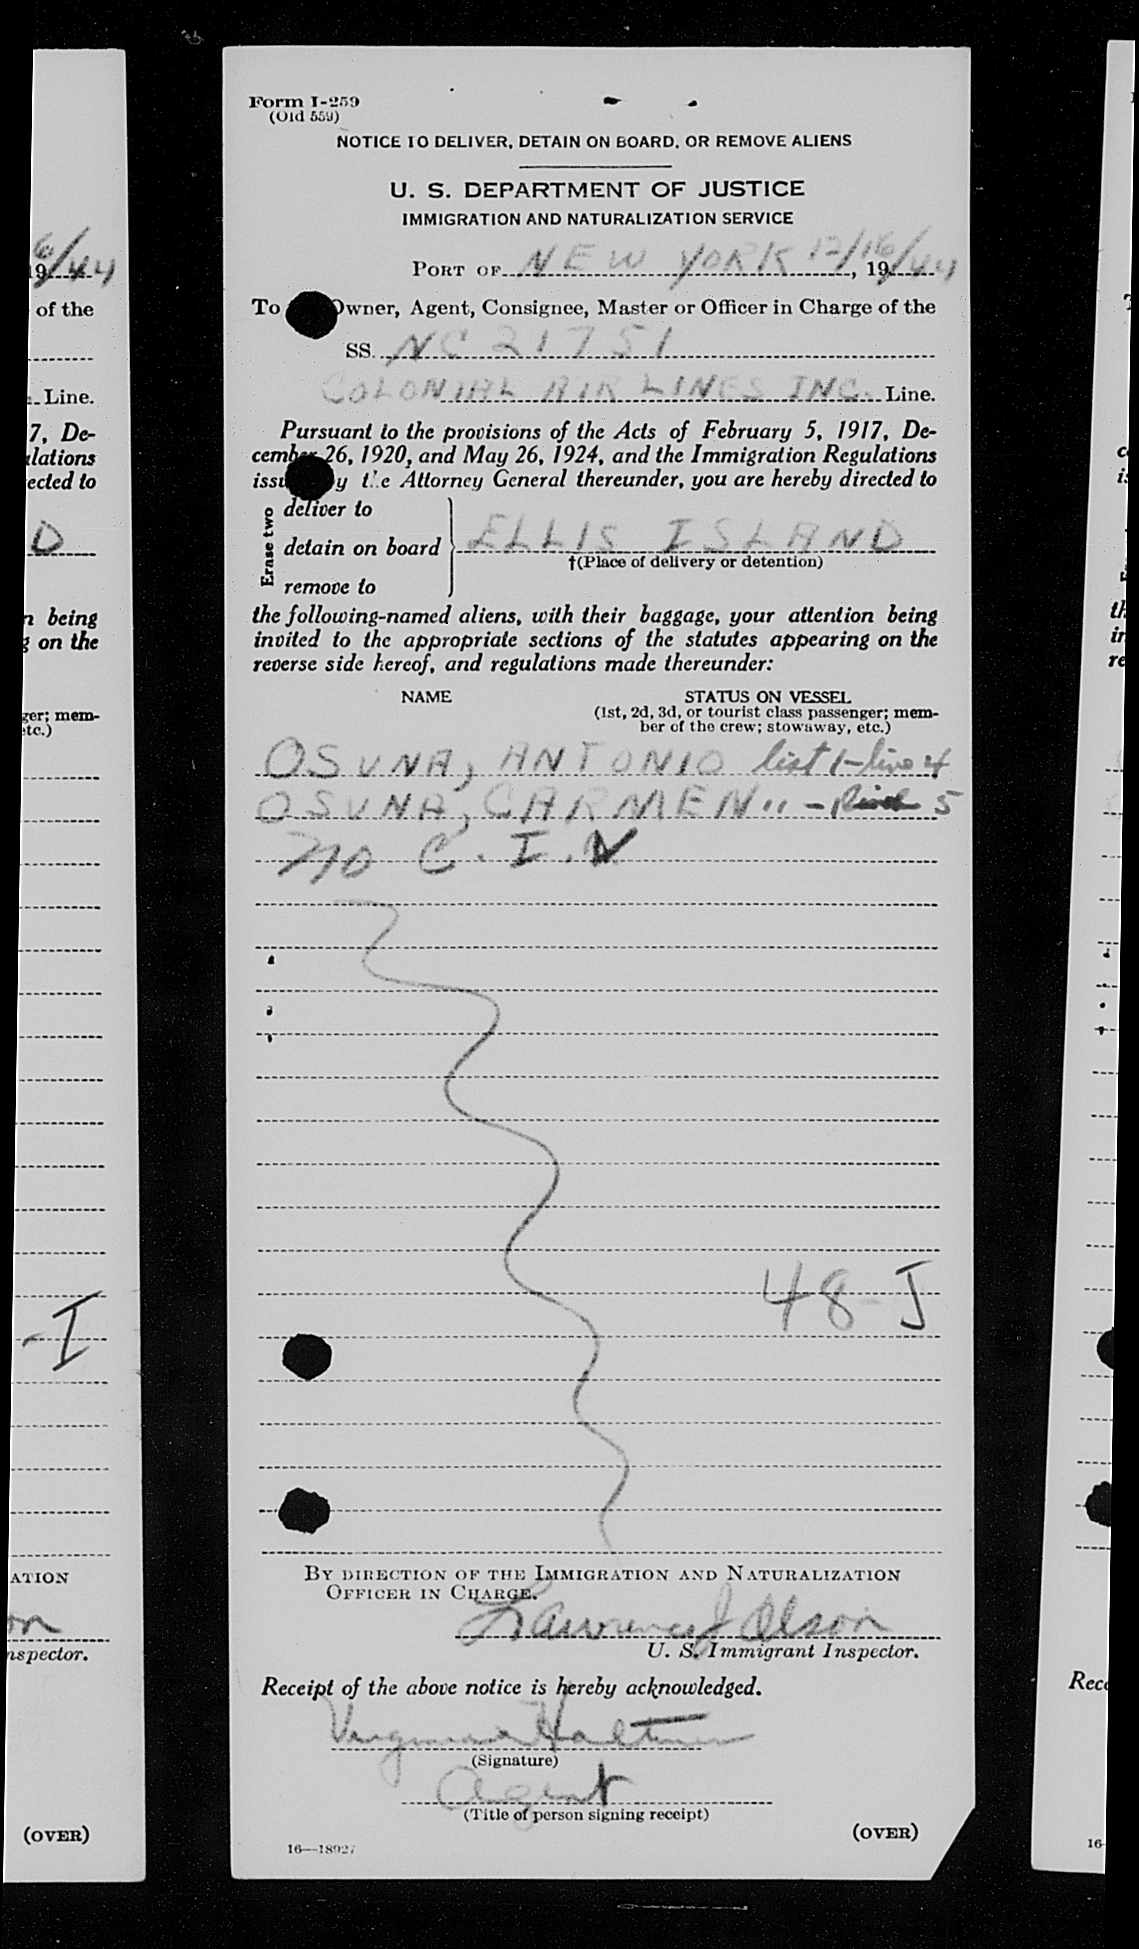 Form I-259
(Old 559)
NOTICE TO DELIVER, DETAIN ON BOARD, OR REMOVE ALIENS
U. S. DEPARTMENT OF JUSTICE
IMMIGRATION AND NATURALIZATION SERVICE
PORT OF NEW YORK 12/16/44, 19
To Owner, Agent, Consignee, Master or Officer in Charge of the
SS. NC 21751
COLONIAL AIR LINES INC. Line.
Pursuant to the provisions of the Acts of February 5, 1917, De-
cember 26, 1920, and May 26, 1924, and the Immigration Regulations
issued by the Attorney General thereunder, you are hereby directed to
Erase two
deliver to
detain on board ELLIS ISLAND
†(Place of delivery or detention)
remove to
the following-named aliens, with their baggage, your attention being
invited to the appropriate sections of the statutes appearing on the
reverse side hereof, and regulations made thereunder:
NAME STATUS ON VESSEL
(1st, 2d, 3d, or tourist class passenger; mem-
ber of the crew; stowaway, etc.)
OSUNA, ANTONIO list 1-line 4
OSUNA, CARMEN " - 5
no C.I.V
48-J
BY DIRECTION OF THE IMMIGRATION AND NATURALIZATION
OFFICER IN CHARGE.
Lawrence J Olson
U. S. Immigrant Inspector.
Receipt of the above notice is hereby acknowledged.
Virginia
(Signature)
Agent
(Title of person signing receipt)
16—18927 (OVER)
6/44
19
of the
Line.
7, De-
ulations
ected to
D
n being
g on the
ger; mem-
etc.)
-I
ATION
on
nspector.
(OVER)
Rece
16